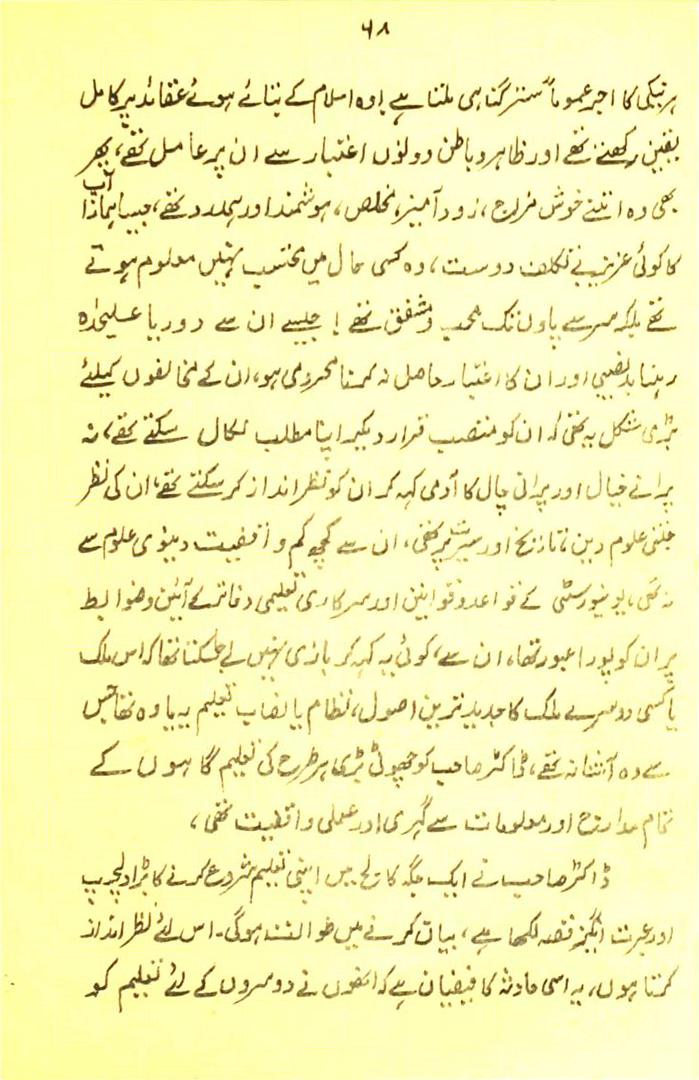 ۶۸
ہر نیکی کا اجر عموماً ستر گنا ہی ملتا ہے! وہ اسلام کے بتائے ہوئے عقائد پر کامل
یقین رکھتے تھے اور ظاہر و باطن دونوں اعتبار سے ان پر عامل تھے، پھر
بھی وہ اتنے خوش مزاج، زود آمیز، مخلص، ہوشمند اور ہمدرد تھے، جیسا ہمارا آپ
کا کوئی عزیز بے تکلف دوست، وہ کسی حال میں محتسب نہیں معلوم ہوتے
تھے بلکہ سر سے پاوں تک محب و مشفق تھے! جیسے ان سے دور یا علیحدٰہ
رہنا بدنصیبی اور ان کا اعتبار حاصل نہ کرنا محرومی ہو، ان کے مخالفوں کیلئے
بڑی مشکل یہ تھی کہ ان کو متعصب قرار دیکر اپنا مطلب نکال سکتے تھے، نہ
پرانے خیال اور پرانی چال کا آدمی کہہ کر ان کو نظر انداز کر سکتے تھے، ان کی نظر
جتنی علوم دین، تاریخ اور سیر پر تھی، ان سے کچھ کم واقفیت دینوی علوم سے
نہ تھی، یونیورسٹی کے قواعد و قوانین اور سرکاری تعلیمی دفاتر کے آئین و ضوابط
پر ان کو پورا عبور تھا، ان سے، کوئی یہ کہہ کر بازی نہیں لے جا سکتا تھا کہ اس ملک
یا کسی دوسرے ملک کا جدید ترین اصول، نظام یا نصاب تعلیم یہ یا وہ تھا جس
سے وہ آشنا نہ تھے، ڈاکٹر صاحب کو چھوٹی بڑی ہر طرح کی تعلیم گاہوں کے
تمام مدارج اور معلومات سے گہری اور عملی واقفیت تھی،
ڈاکٹر صاحب نے ایک جگہ کالج میں اپنی تعلیم شروع کرنے کا بڑا دلچسپ
اور عبرت انگیز قصہ لکھا ہے، بیان کرنے میں طوالت ہوگی۔ اس لئے نظر انداز
کرتا ہوں، یہ اسی حادثہ کا فیضان ہے کہ انھوں نے دوسروں کے لئے تعلیم کو